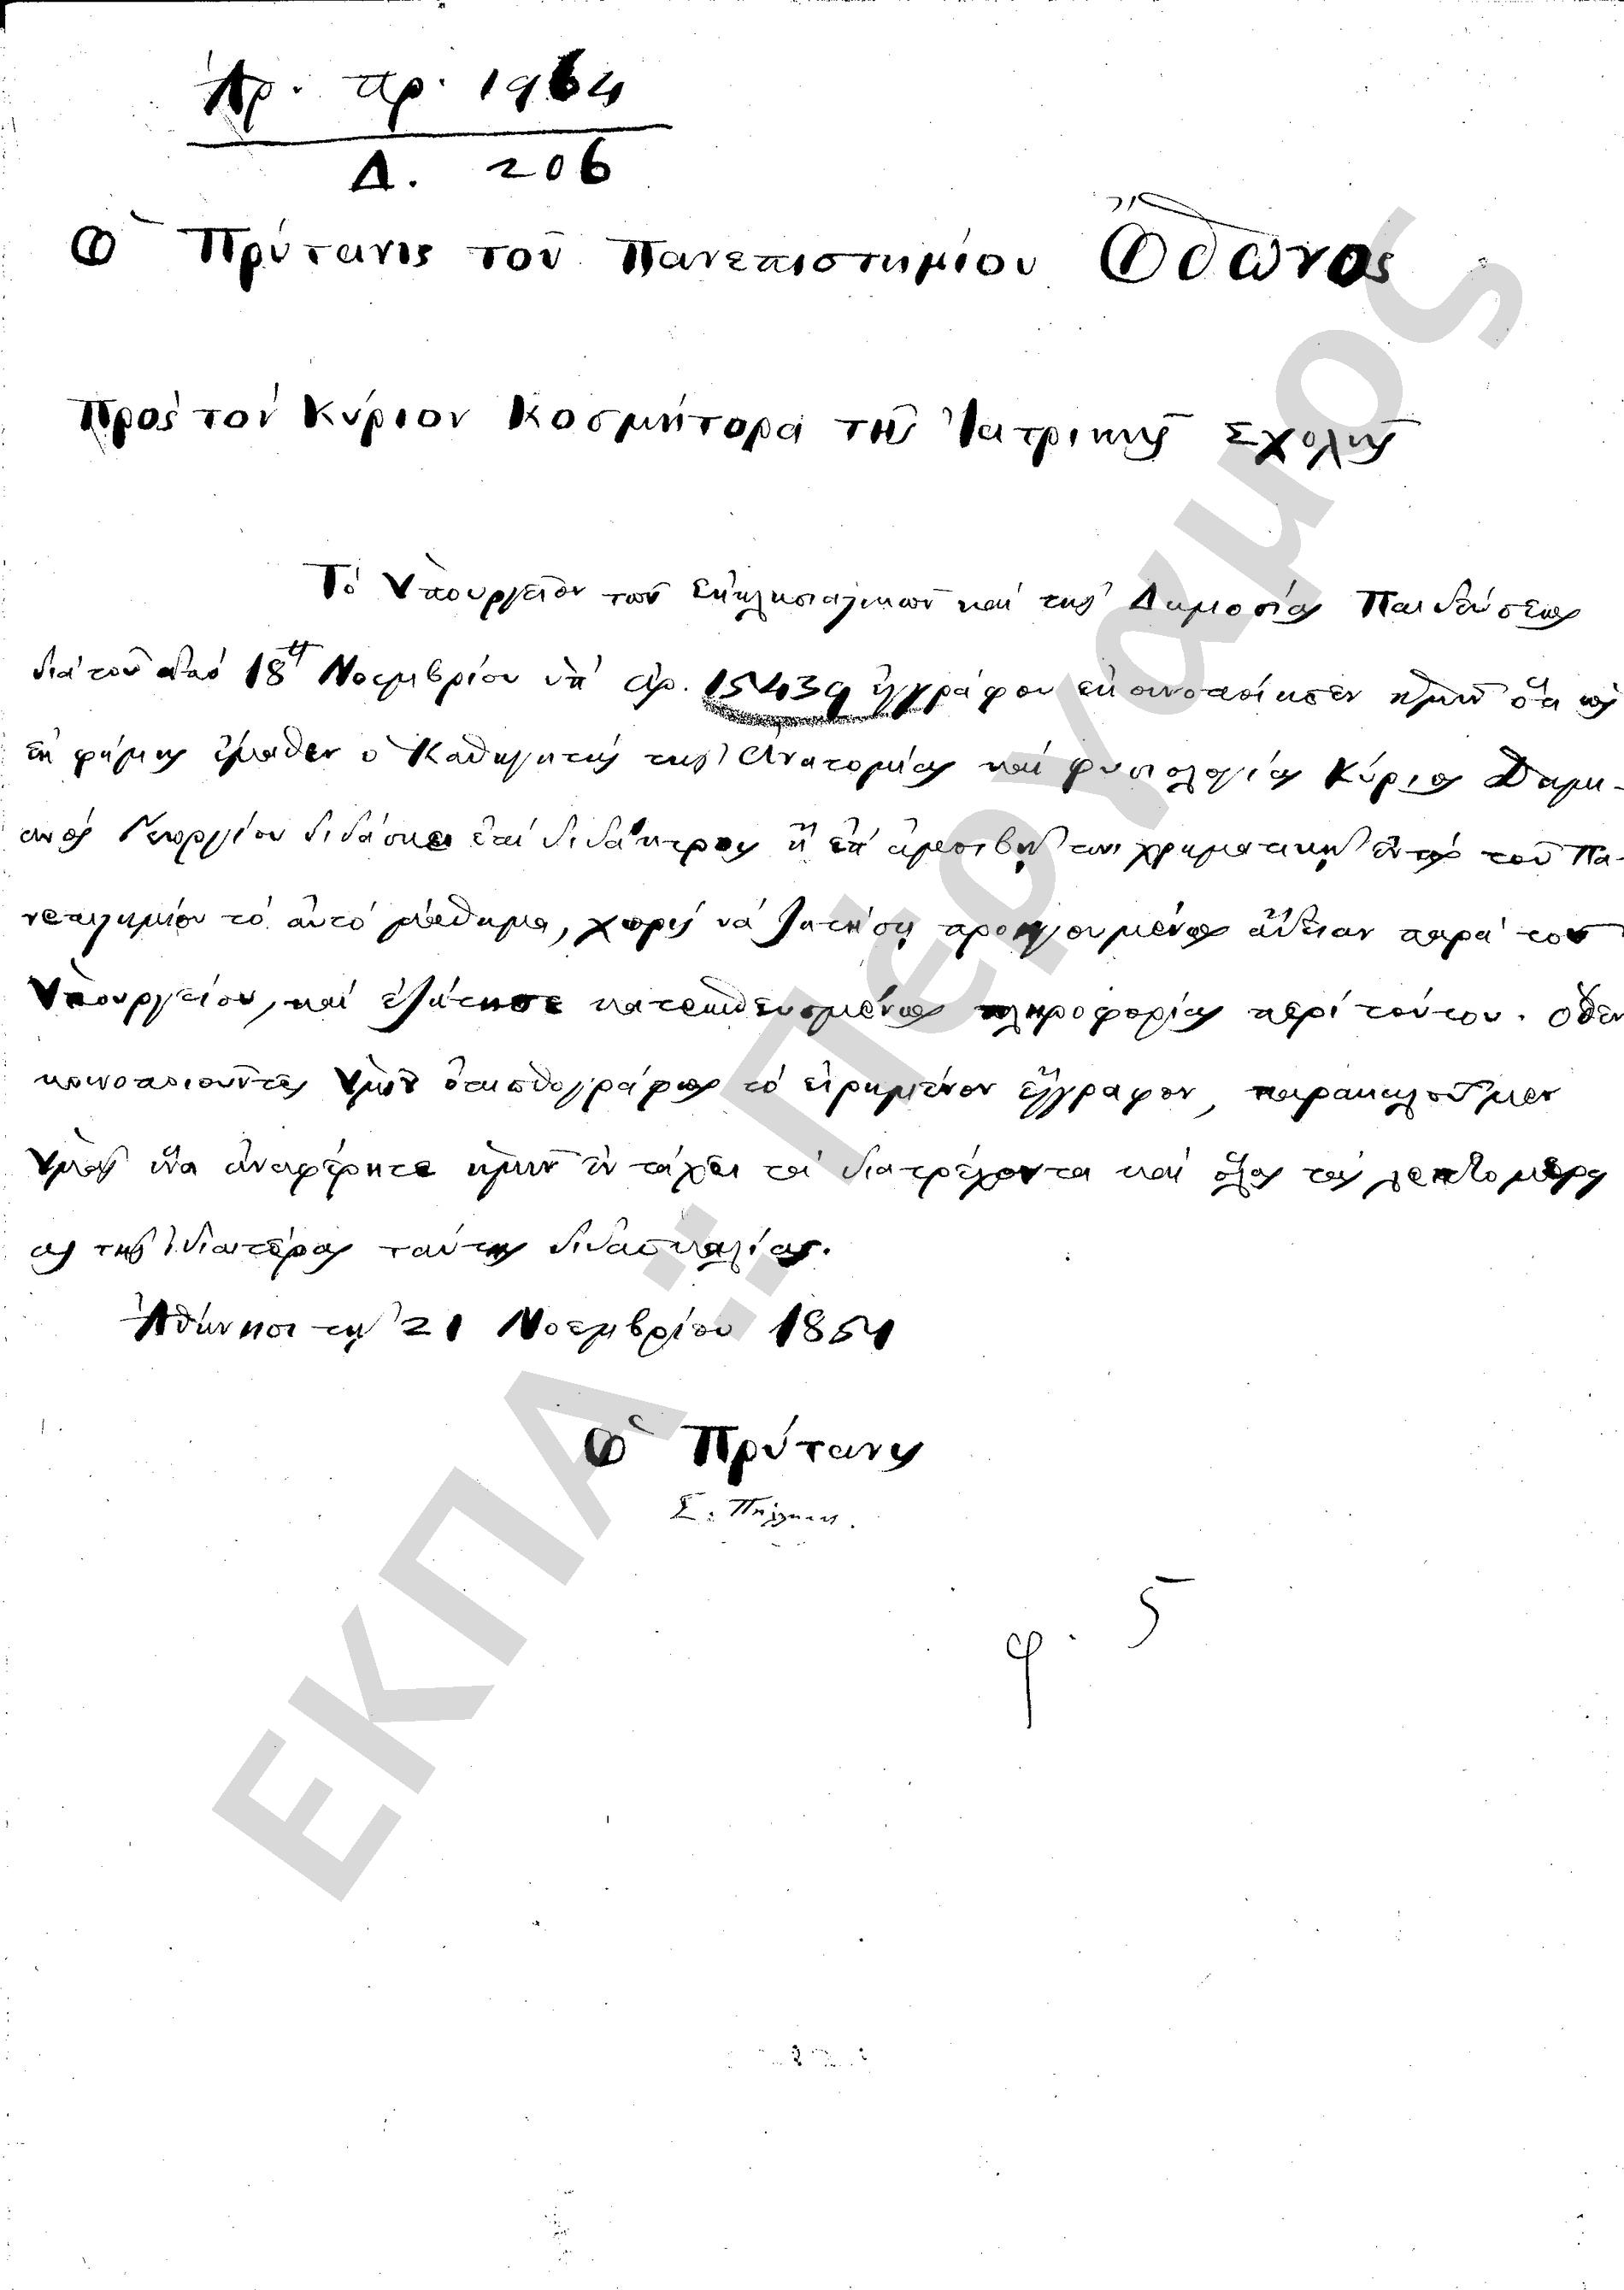 Ἀρ. πρ. 1964
Δ. 206
Ὁ Πρύτανις τοῦ Πανεπιστημίου Ὄθωνος
Πρὸς τὸν Κύριον Κοσμήτορα τῆς Ἰατρικῆς Σχολῆς
Τὸ Ὑπουργεῖον τῶν Ἐκκλησιαστικῶν καὶ τῆς Δημοσίας Παιδεύσεως
διὰ τοῦ ἀπὸ 18η Νοεμβρίου ὑπ' ἀρ. 15439 ἐγγράφου ἐκοινοποίησεν ἡμῖν ὅτι ὡς
ἐκ φήμης ἔμαθεν ὁ Καθηγητὴς τῆς Ἀνατομίας καὶ φυσιολογίας Κύριος Δαμι-
ανὸς Γεωργίου διδάσκει ἐπὶ διδάκτροις ἢ ἐπ' ἀμοιβῇ τινι χρηματικῇ ἐντὸς τοῦ Πα-
νεπιστημίου τὸ αὐτὸ μάθημα, χωρὶς νὰ ζητήσῃ προηγουμένως ἄδειαν παρὰ τοῦ
Ὑπουργείου, καὶ ἐζήτησε κατεπειγόντως πληροφορίας περὶ τούτου. ὅθεν
κοινοποιοῦντες Ὑμῖν ὀπισθογράφως τὸ εἰρημένον ἔγγραφον, παρακαλοῦμεν
Ὑμᾶς ἵνα ἀναφέρητε ἡμῖν ἐν τάχει τὰ διατρέχοντα καὶ ὅλας τὰς λεπτομερεί
ας τῆς ἰδιαιτέρας ταύτης διδασκαλίας.
Ἀθήνησι τῇ 21 Νοεμβρίου 1851
Ὁ Πρύτανις
Σ. Πήλικας.
φ. 5
ΕΚΠΑ: Πέργαμος